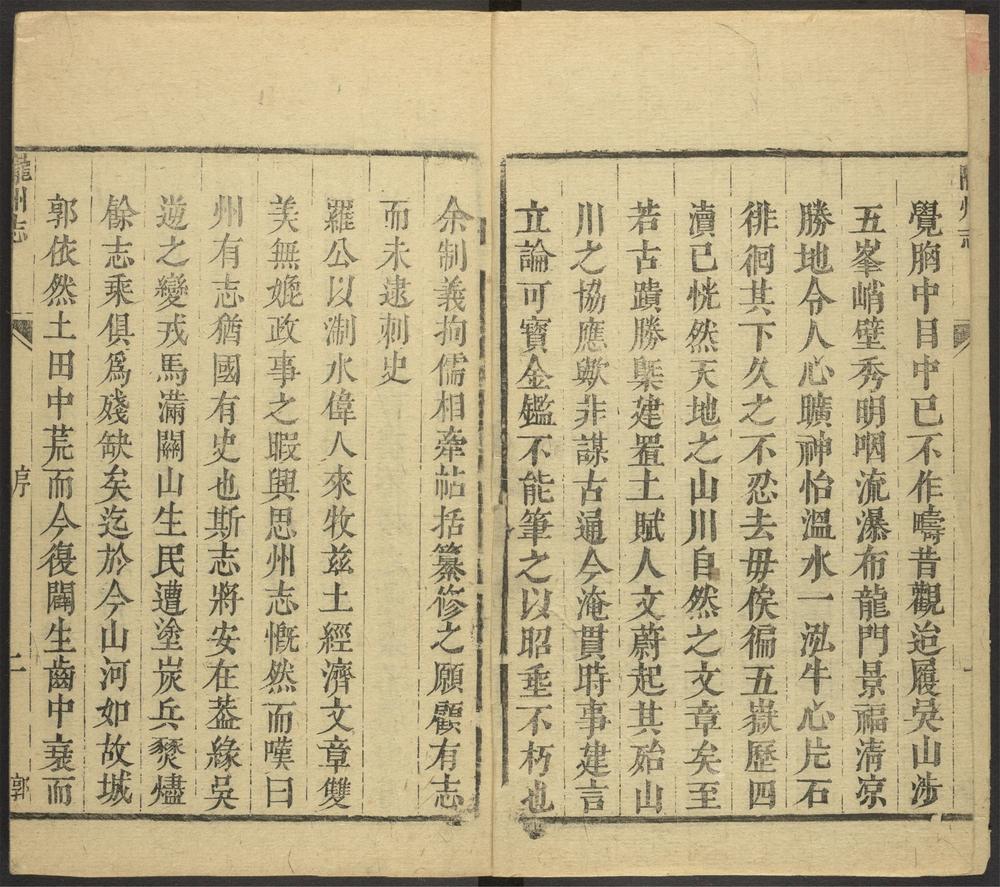 隴州志
覺胸中目中已不作疇昔觀迨履吳山涉
五峯峭壁秀明咽流瀑布龍門景福清凉
勝地令人心曠神怡溫水一泓牛心片石
徘徊其下久之不忍去毋俟徧五嶽歷四
瀆已恍然天地之山川自然之文章矣至
若古蹟勝槩建置土賦人文蔚起其殆山
川之協應歟非謀古通今淹貫時事建言
立論可寶金鑑不能筆之以昭垂不朽也
余制義拘儒相牽帖括纂修之願顧有志
而未逮刺史
羅公以淛水偉人來牧茲土經濟文章雙
美無媲政事之暇興思州志慨然而嘆曰
州有志猶國有史也斯志將安在葢緣吳
逆之變戎馬滿關山生民遭塗炭兵燹燼
餘志乘俱爲殘缺矣迄於今山河如故城
郭依然土田中荒而今復闢生齒中衰而
隴州志 序 二 郭